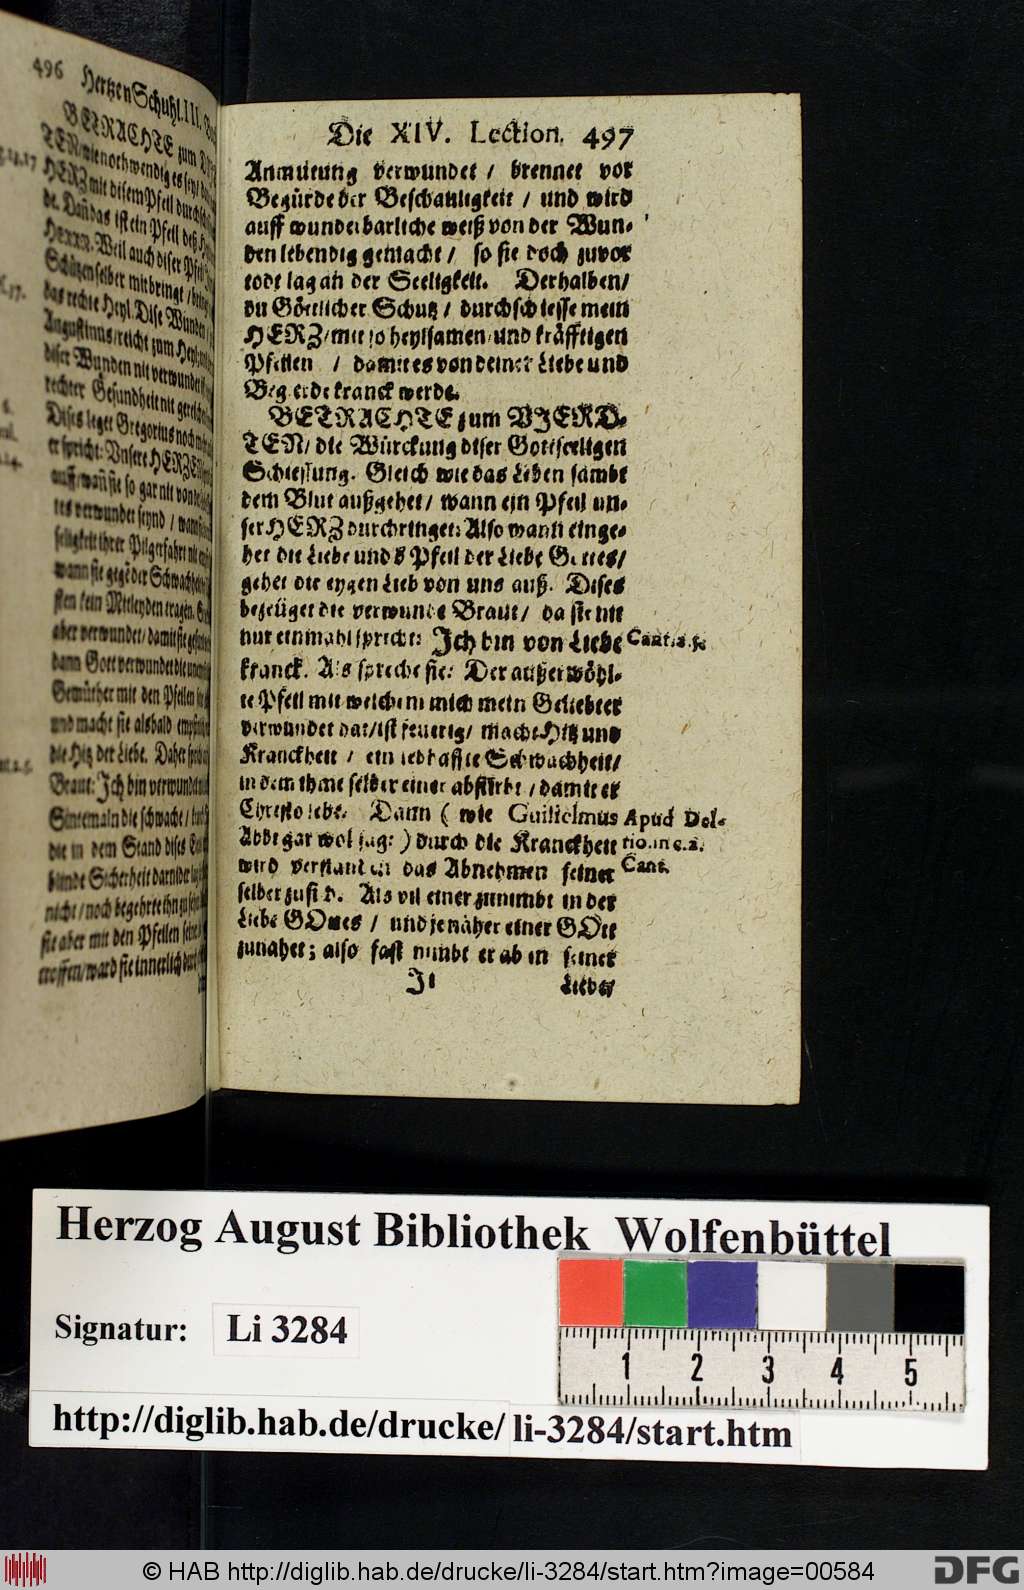 496 Hertzen Schuhl. III.
BETRACHTE zum
TEN wie nothwendig es sey/
HERZ mit disem Pfeil durch
de. Dañ das ist ein Pfeil deß
Herrn. Weil auch diser
Schützen selber mitbringt/
das rechte Heyl. Dise Wunden
Augustinus/reicht zum Heyl
diser Wunden nit verwundet
rechter Gesundheit nit
Dises leget Gregorius noch
er spricht: Unsere HERZEN
auff/wañ sie so gar nit von
tes verwundet seynd/
seligkeit ihrer Pilgerfahrt nit
wann sie gegē der Schwachheit
sten kein Mitleyden tragen.
aber verwundet/damit sie
dann Gott verwundet die
Gemüther mit den Pfeilen
und macht sie alsbald
die Hitz der Liebe. Daher
Braut: Ich bin verwundet
Sintemaln die schwache/
die in dem Stand dises
blinde Sicherheit darnider
nicht/noch begehrte ihn zu
sie aber mit den Pfeilen seine
troffen/ward sie innerlich
Die XIV. Lection. 497
Anmutung verwundet/ brennet vor
Begürde der Beschauligkeit/ und wird
auff wunderbarliche weiß von der Wun-
den lebendig gemacht/ so sie doch zuvor
todt lag an der Seeligkeit. Derhalben/
du Göttlicher Schutz/ durchschiesse mein
HERZ/mit so heylsamen/und kräfftigen
Pfeilen/ damit es von deiner Liebe und
Begierde kranck werde.
BETRACHTE zum VIERD-
TEN/ die Würckung diser Gottseeligen
Schiessung. Gleich wie das Leben sambt
dem Blut außgehet/ wann ein Pfeil un-
ser HERZ durchtringet: Also wann einge-
het die Liebe und d' Pfeil der Liebe Gottes/
gehet die eygen Lieb von uns auß. Dises
bezeüget die verwunde Braut/ da sie nit
nur einmahl spricht: Ich bin von Liebe
Cant.
kranck. Als spreche sie: Der außerwöhl-
te Pfeil mit welchem mich mein Geliebter
verwundet hat/ist feuerig/ macht Hitz und
Kranckheit/ ein lebhaffte Schwachheit/
in dem ihme selber einer abstirbt/ damit er
Christo lebe. Dann (wie Guilielmus
Apud Del-
Abbt gar wol sagt) durch die Kranckheit
rio. in c. 2.
wird verstanden das Abnehmen seiner
Cant.
selber zusich. Als vil einer zunimbt in der
Liebe GOttes/ und je näher einer GOtt
zunahet; also fast nimbt er ab in seiner
Ii Liebe/
Herzog August Bibliothek Wolfenbüttel
Signatur: Li 3284
1 2 3 4 5
http://diglib.hab.de/drucke/ li-3284/start.htm
© HAB http://diglib.hab.de/drucke/li-3284/start.htm?image=00584
DFG